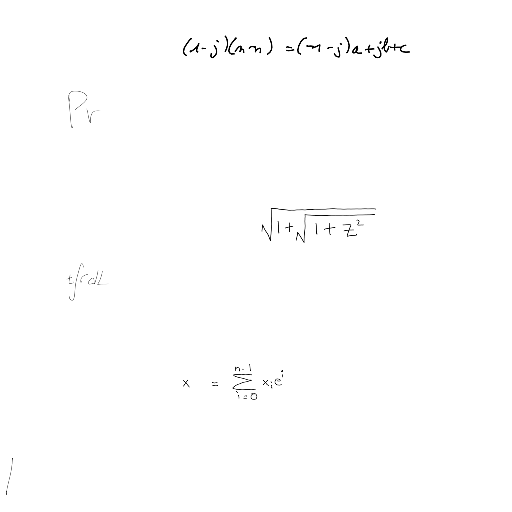 (1-j)(n-n) = (n-j)a+jb+c
Pr
√(1+√(1+z²))
x = ∑_{i=0}^{n-1} x_i e^i